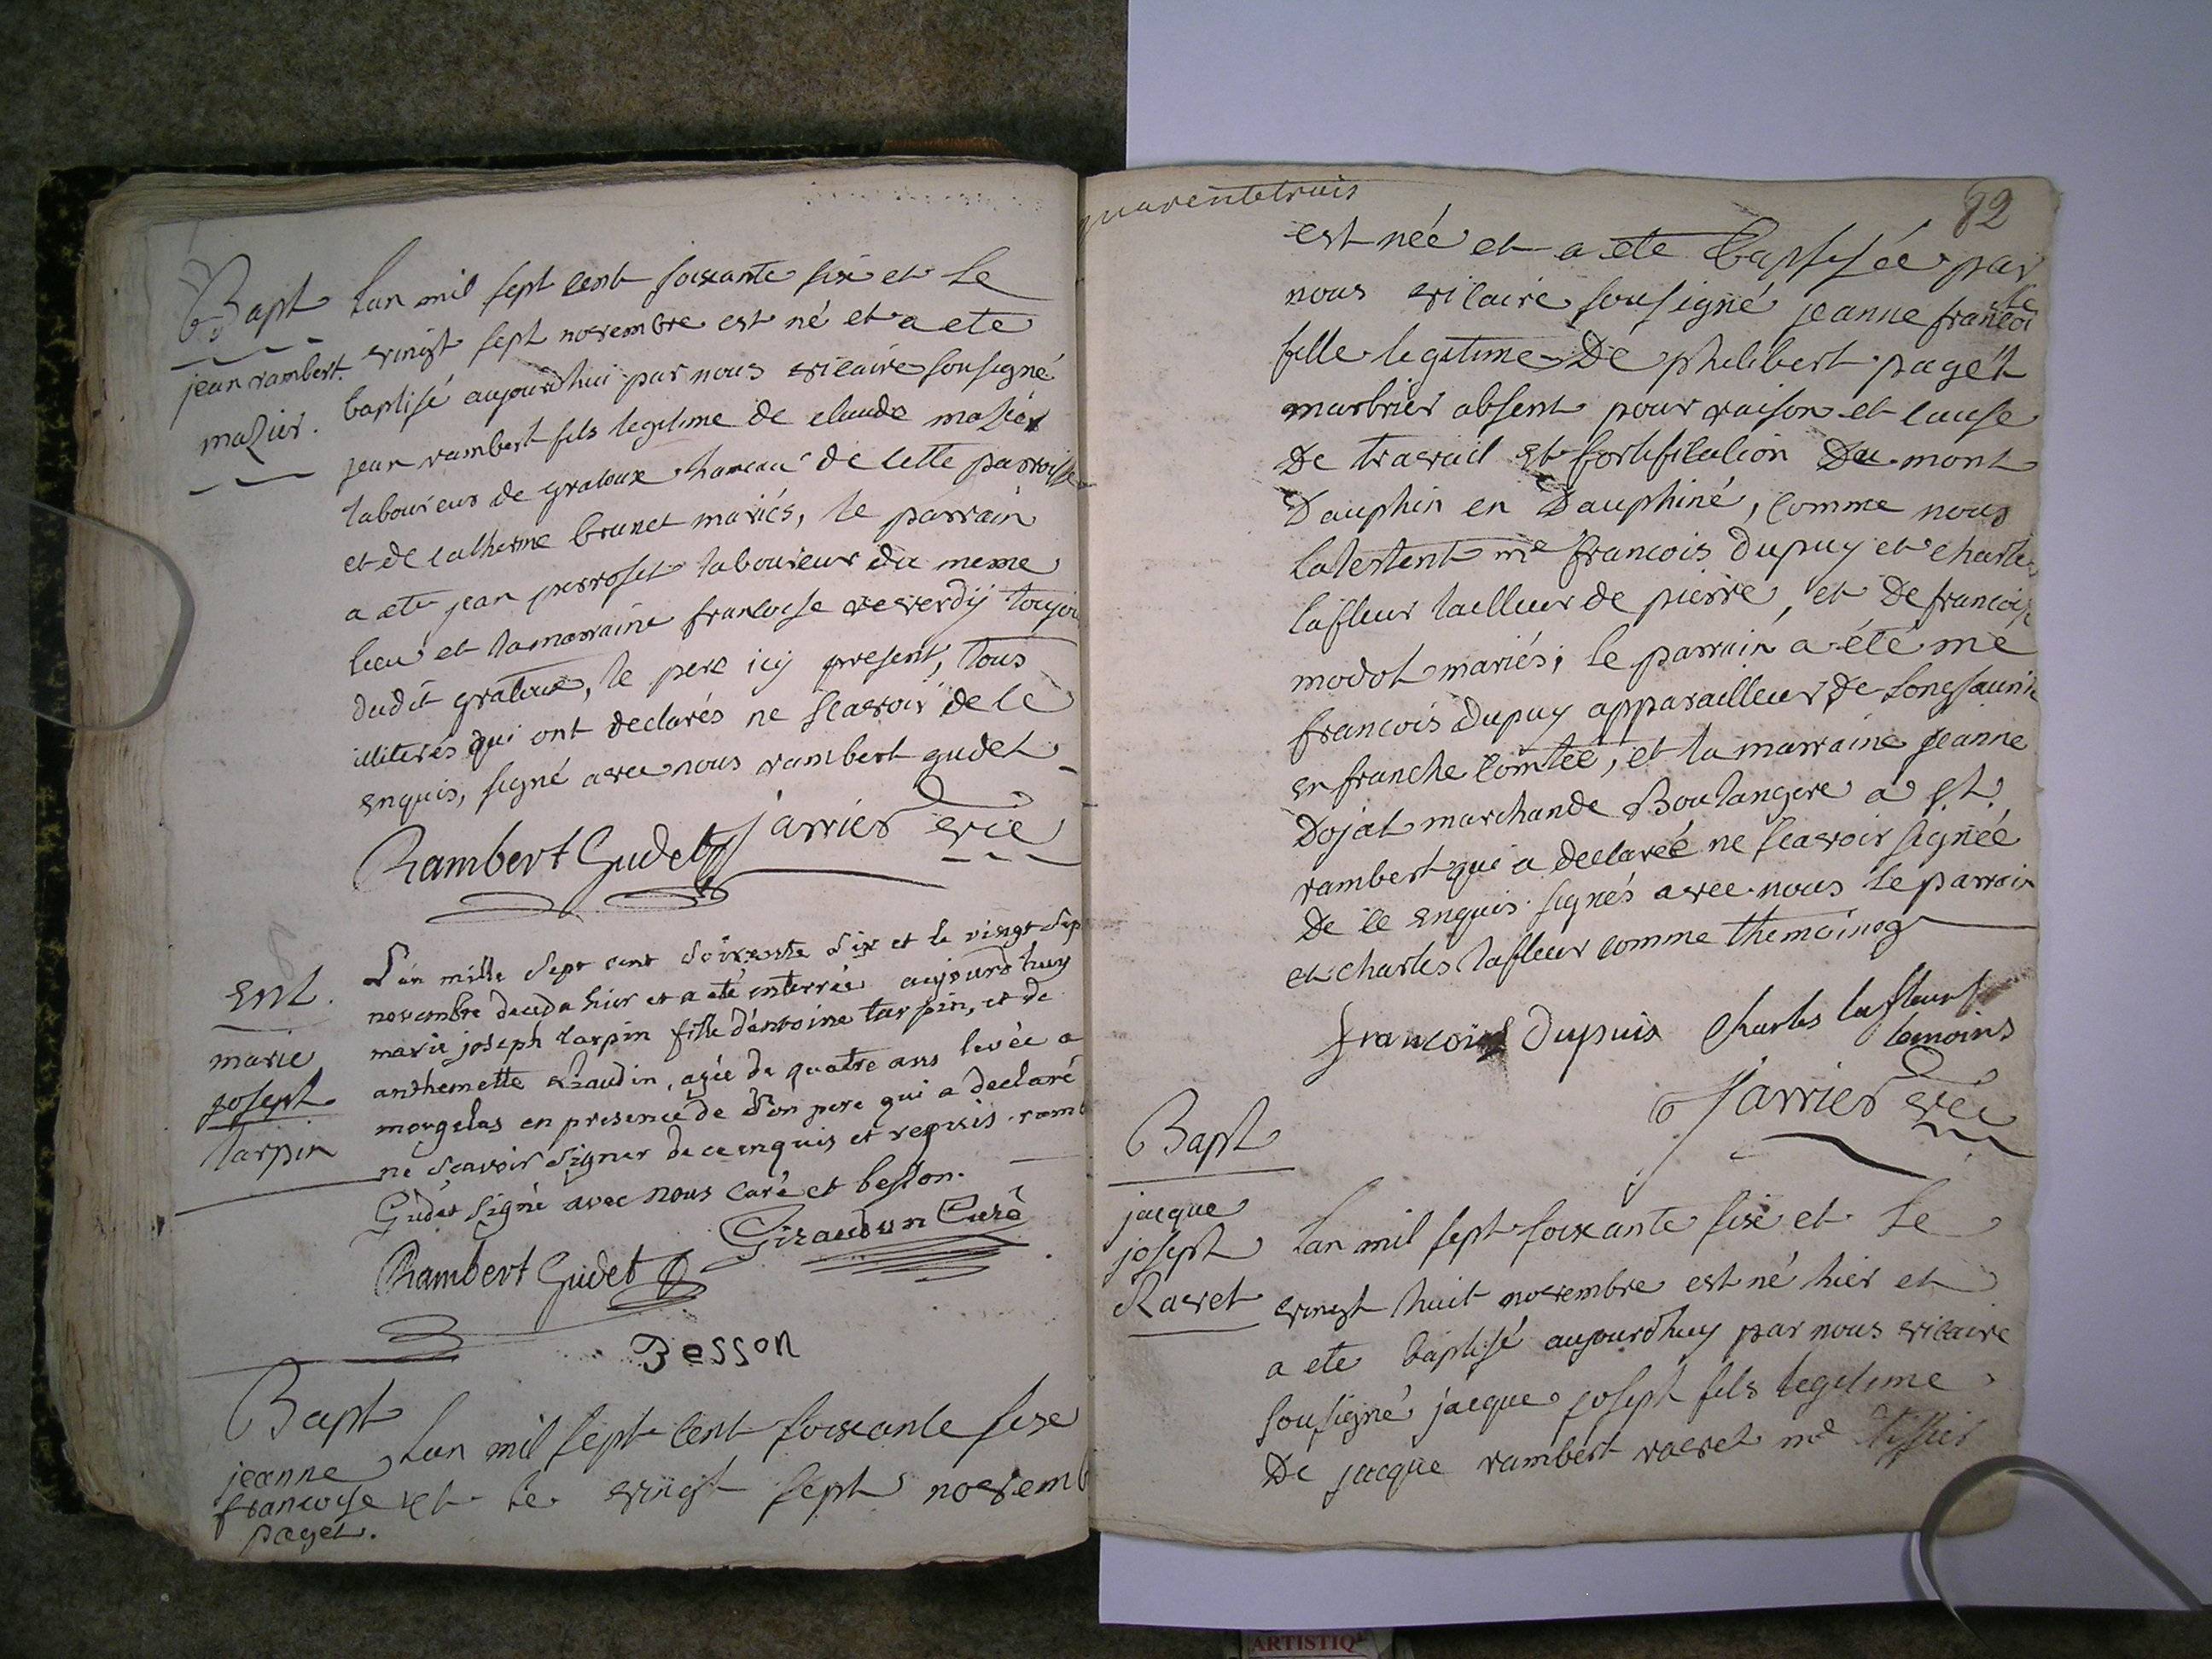 Bapt
jean rambert
mazier.
Lan mil sept cent soixante six et le
vingt sept novembre est né et a ete
baptisé aujourdhui par nous vicaire sousigné
jean rambert fils legitime de claude mazier
laboureur de gratoux hameau de cette parroisse
et de catherine brunet mariés, le parrain
a ete jean perroset laboureur du meme
lieu et la marraine francoise reverdÿ
dudit gratoux, le pere icy present, tous
illiterés qui ont declarés ne scavoir de ce
enquis, signé avec nous rambert gudet
Rambert Gudet jarrier vic
ent.
marie
joseph
tarpin
L'an mille sept cent soixante Six et le vingt Sep
novembre deceda hier et a eté enterrée aujourdhuy
marie joseph tarpin fille d'antoine tarpin, et de
anthemette, agée de quatre ans levée a
mongelas en presence de Son pere qui a declaré
ne Scavoir Signer de ce enquis et requis. ramb
Gudet signé avec nous curé et besson.
Rambert Gudet Giraudon Curé
Besson
Bapt
jeanne
francoise
paget.
Lan mil sept cent soixante sixe
et le vingt sept novemb
quarentetrois
82
est née et a ete baptisée par
nous vicaire sousigné jeanne francoise
fille legitime De philibert pagét
marbrier absent pour raison et cause
De travail et fortification Du mont
Dauphin en Dauphiné, comme nous
latestent me francois Dupuy et charles
lafleur tailleur de pierre, et De francoise
modot mariés; le parrain a été me
francois Dupuy apparailleur De Longsaunie
en franche comtée, et la marraine jeanne
Dojat marchande Boulangere a St.
rambert qui a declareé ne scavoir signée
De ce enquis. signés avec nous le parrain
et charles lafleur comme themoing
francois Dupuis Charles lafleur
temoins
jarrier vic
Bapt
jacque
joseph
Ravet
Lan mil sept soixante six et Le
vingt huit novembre est né hier et
a ete baptisé aujourdhuy par nous vicaire
sousigné jacque joseph fils legitime
De jacque rambert ravet md tissier
ARTISTIQ